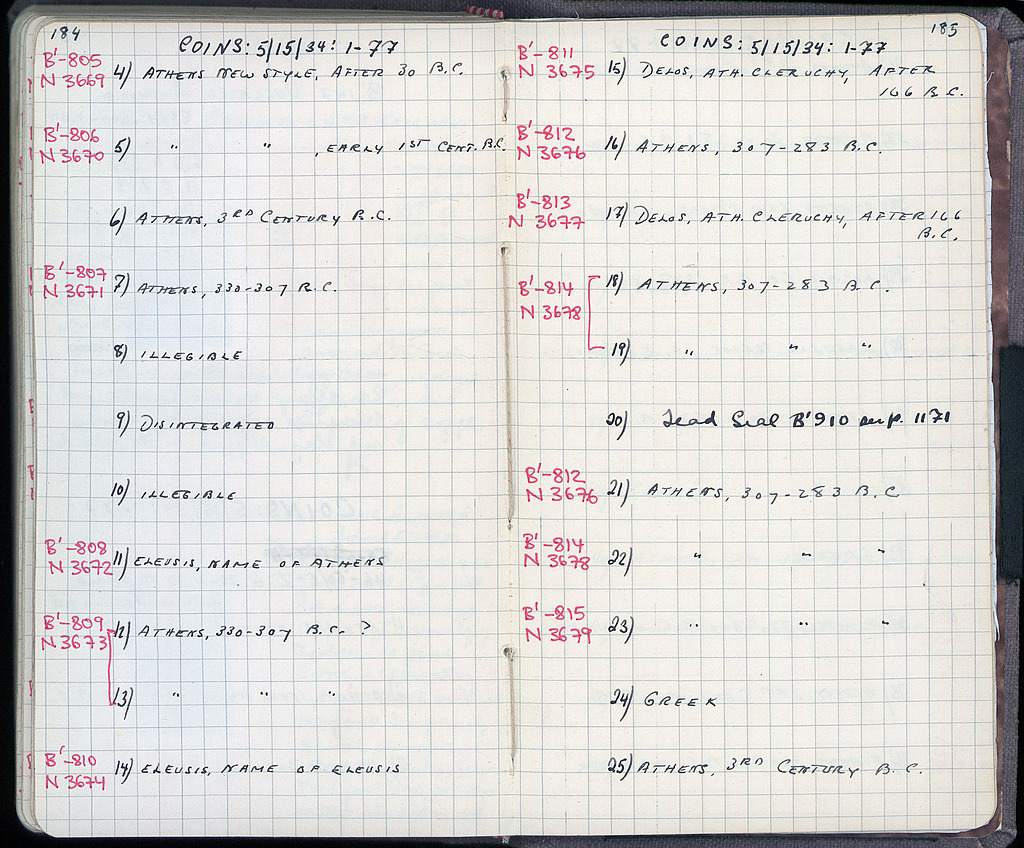 184
COINS: 5/15/34: 1-77
B'-805
N 3669 4) ATHENS NEW STYLE, AFTER 30 B.C.
B'-806
N 3670 5) " " , EARLY 1ST CENT. B.C.
6) ATHENS, 3RD CENTURY B.C.
B'-807
N 3671 7) ATHENS, 330-307 B.C.
8) ILLEGIBLE
9) DISINTEGRATED
10) ILLEGIBLE
B'-808
N 3672 11) ELEUSIS, NAME OF ATHENS
B'-809
N 3673 12) ATHENS, 330-307 B.C. ?
13) " " "
B'-810
N 3674 14) ELEUSIS, NAME OF ELEUSIS
185
COINS: 5/15/34: 1-77
B'-811
N 3675 15) DELOS, ATH. CLERUCHY, AFTER
166 B.C.
B'-812
N 3676 16) ATHENS, 307-283 B.C.
B'-813
N 3677 17) DELOS, ATH. CLERUCHY, AFTER 166
B.C.
B'-814
N 3678 18) ATHENS, 307-283 B.C.
19) " " "
20) Lead Seal B'910 on p. 1171
B'-812
N 3676 21) ATHENS, 307-283 B.C
B'-814
N 3678 22) " " "
B'-815
N 3679 23) " " "
24) GREEK
25) ATHENS, 3RD CENTURY B.C.